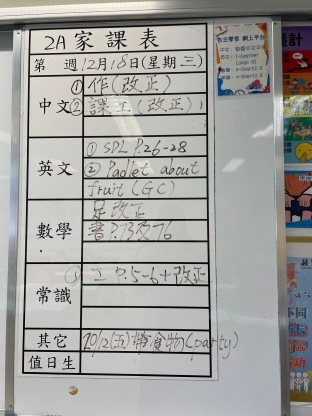 2A 家課表
第 週 12月18日(星期三)
中文
① 作(改正)
② 課工(改正)
英文
① SPL P.26-28
② Padlet about
fruit (GC)
數學
是改正
書P.73及76
常識
① 工 P.5-6+改正
其它
20/12(五)帶食物(party)
值日生
自主學習 網上平台